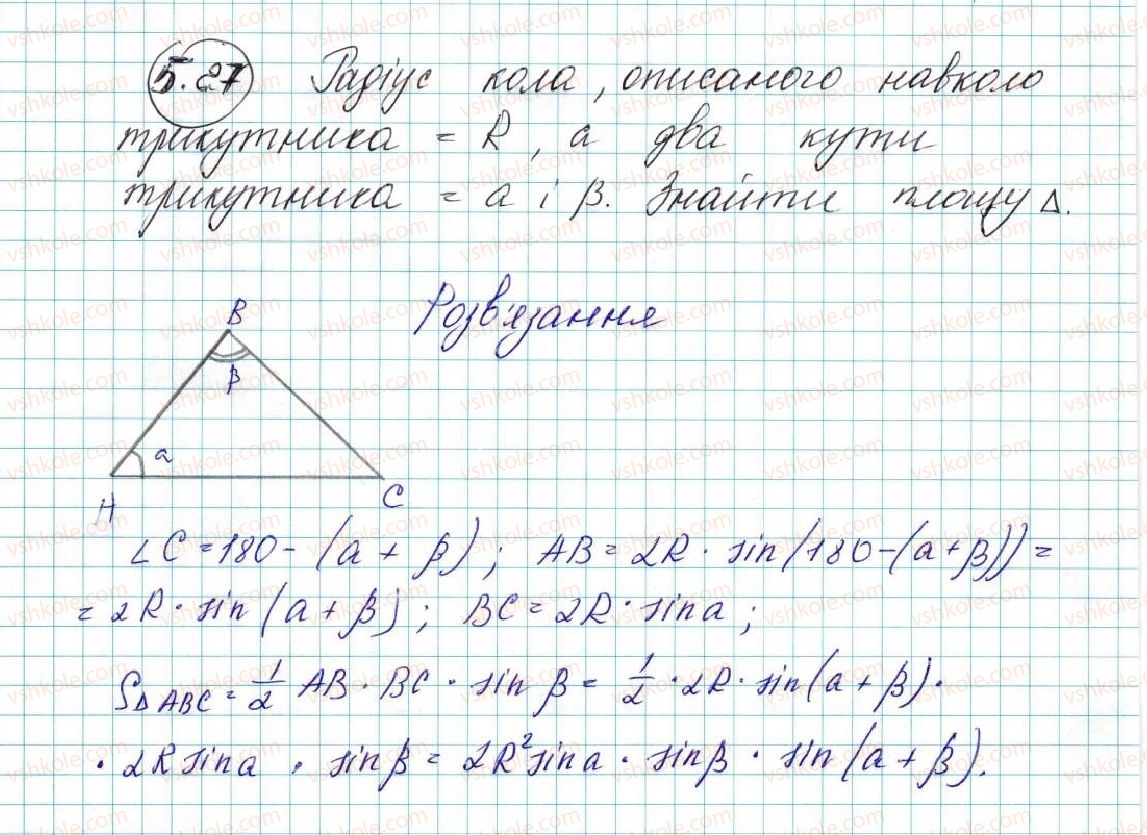 5.27 Радіус кола, описаного навколо
трикутника = R, а два кути
трикутника = a і β. Знайти площу Δ.
Розв'язання
B
β
a
A
C
∠C = 180 - (a + β); AB = 2R · sin(180-(a+β)) =
= 2R · sin(a + β); BC = 2R · sin a;
S∆ABC = 1/2 AB · BC · sin β = 1/2 · 2R · sin(a + β) ·
· 2R sin a · sin β = 2R² sin a · sin β · sin(a + β).